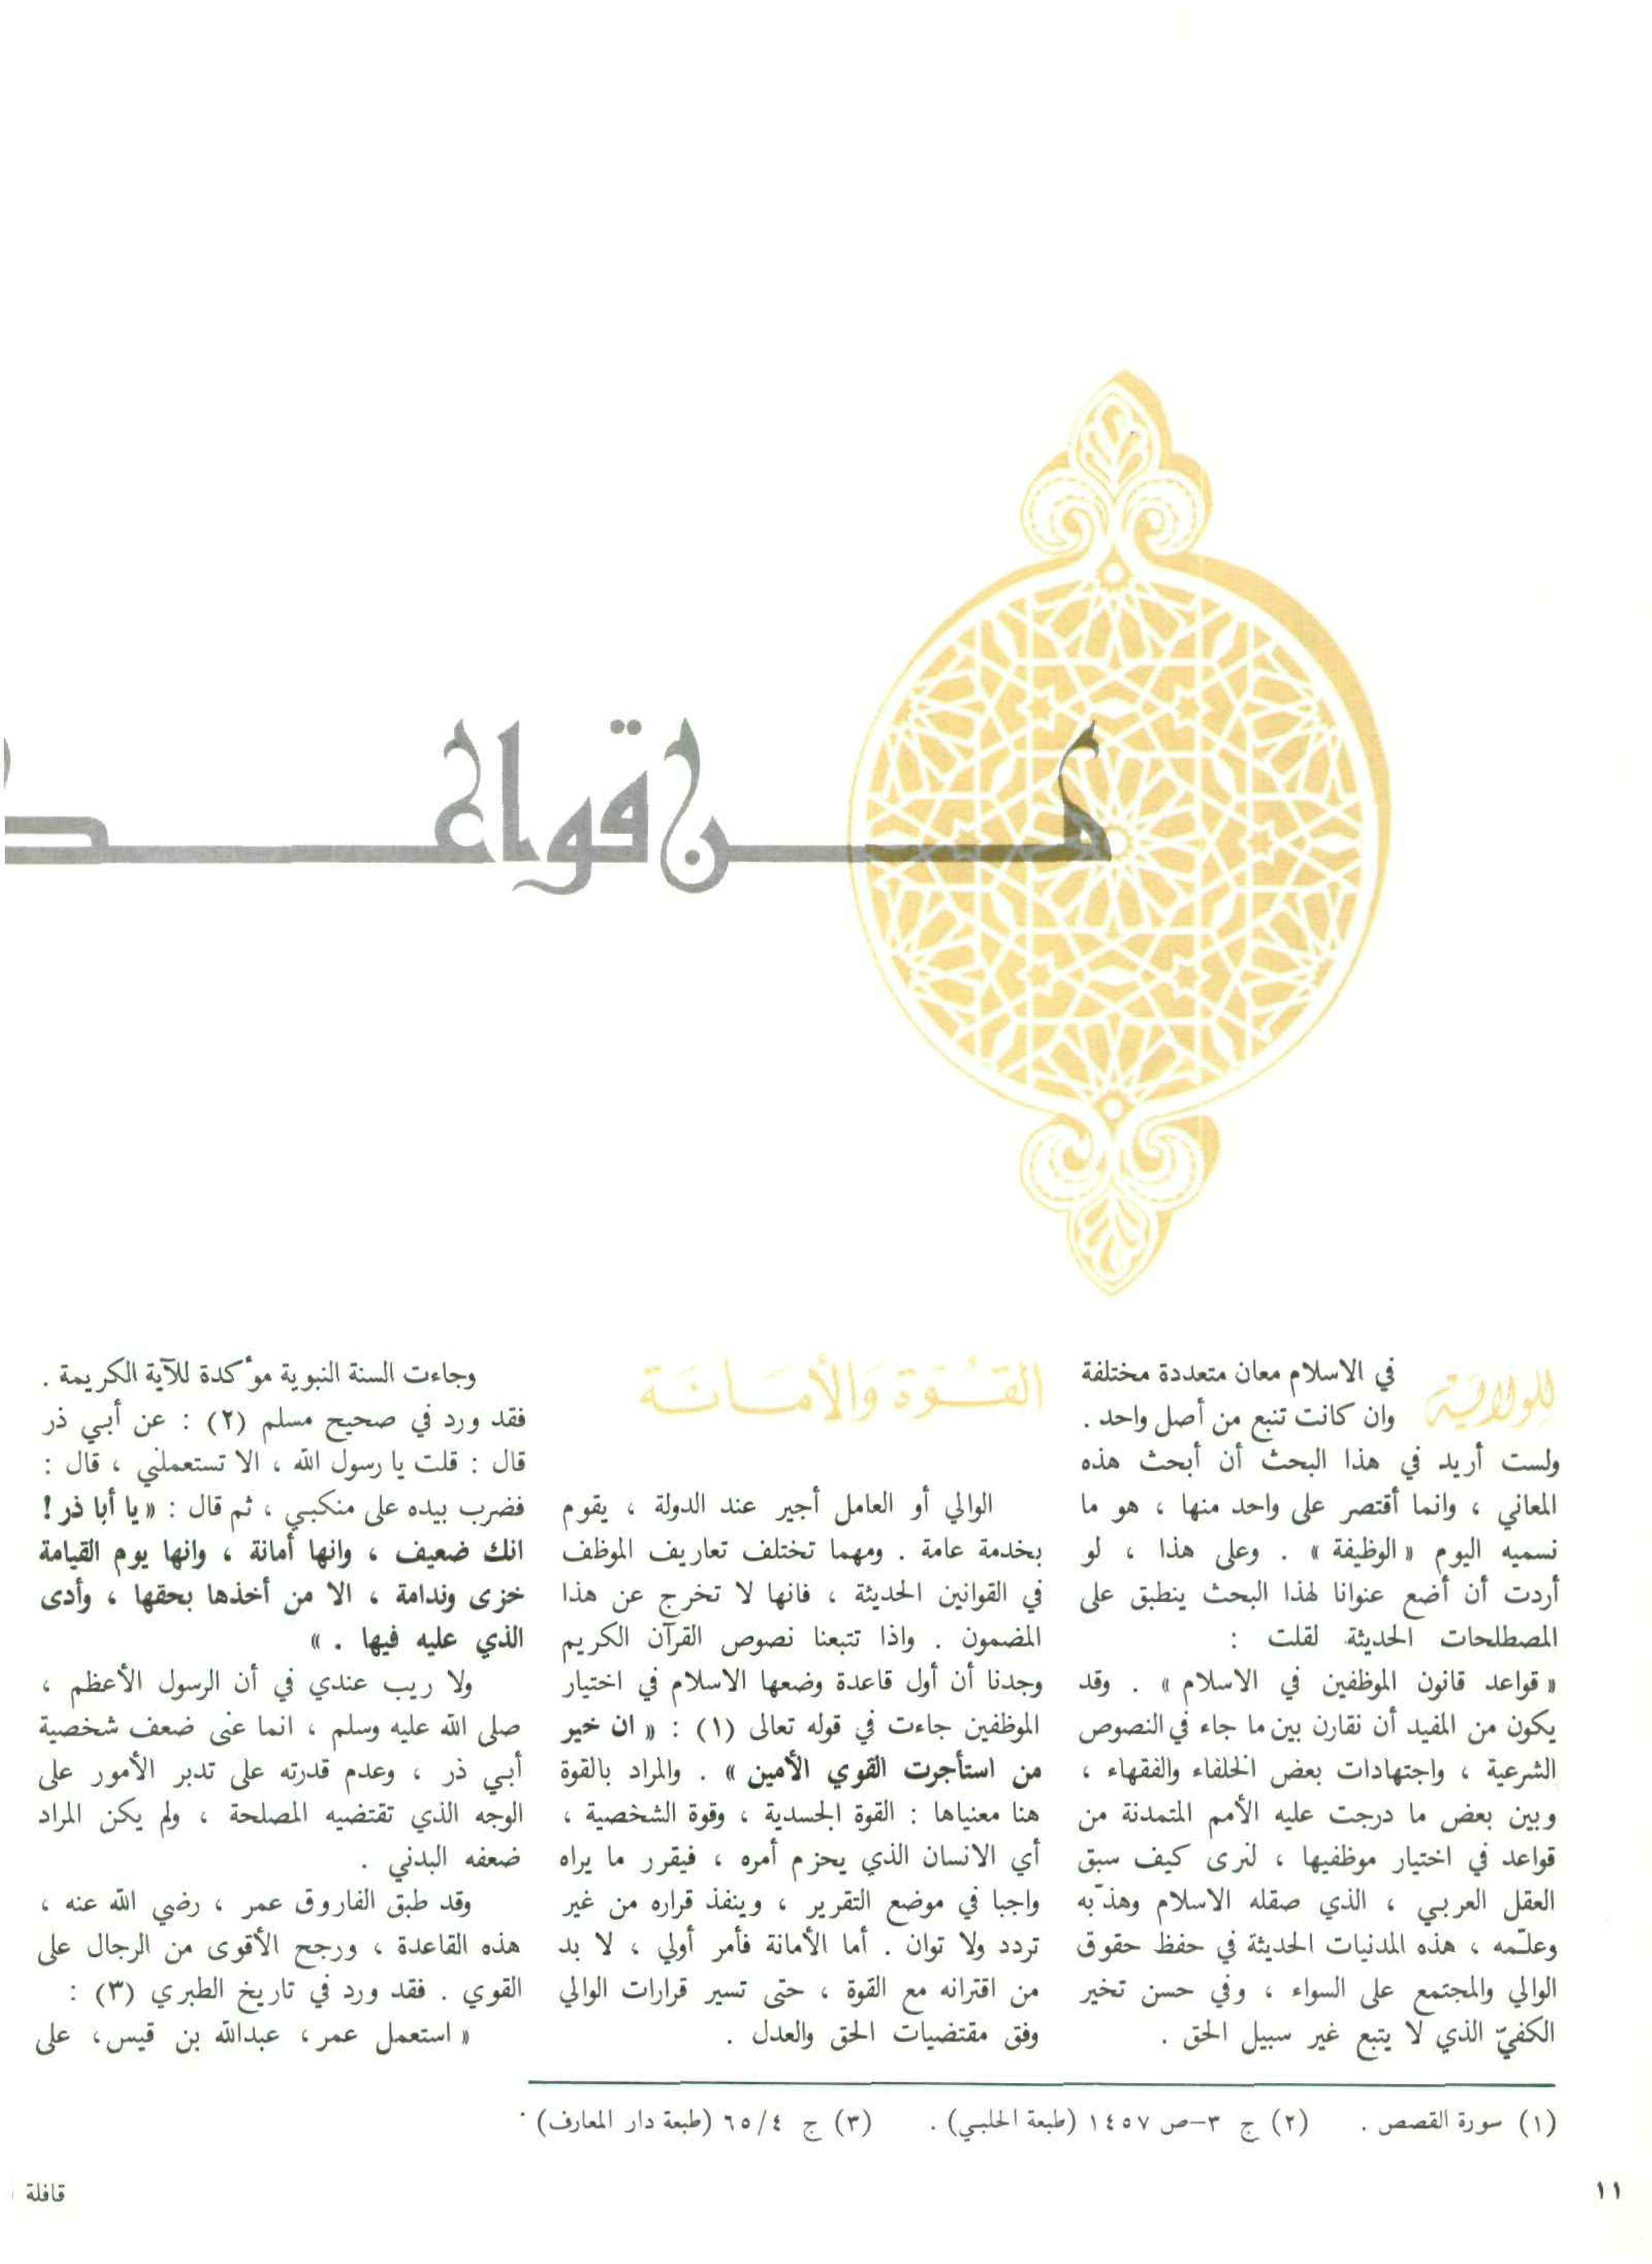 من قواعد
للولاية
في الاسلام معان متعددة مختلفة
وان كانت تنبع من أصل واحد .
ولست أريد في هذا البحث أن أبحث هذه
المعاني ، وانما أقتصر على واحد منها ، هو ما
نسميه اليوم « الوظيفة » . وعلى هذا ، لو
أردت أن أضع عنوانا لهذا البحث ينطبق على
المصطلحات الحديثة لقلت :
« قواعد قانون الموظفين في الاسلام » . وقد
يكون من المفيد أن نقارن بين ما جاء في النصوص
الشرعية ، واجتهادات بعض الخلفاء والفقهاء ،
وبين بعض ما درجت عليه الأمم المتمدنة من
قواعد في اختيار موظفيها ، لنرى كيف سبق
العقل العربي ، الذي صقله الاسلام وهذّبه
وعلّمه ، هذه المدنيات الحديثة في حفظ حقوق
الوالي والمجتمع على السواء ، وفي حسن تخير
الكفيّ الذي لا يتبع غير سبيل الحق .
القُوة وَالأمَانَة
الوالي أو العامل أجير عند الدولة ، يقوم
بخدمة عامة . ومهما تختلف تعاريف الموظف
في القوانين الحديثة ، فانها لا تخرج عن هذا
المضمون . واذا تتبعنا نصوص القرآن الكريم
وجدنا أن أول قاعدة وضعها الاسلام في اختيار
الموظفين جاءت في قوله تعالى (١) : « ان خير
من استأجرت القوي الأمين » . والمراد بالقوة
هنا معنياها : القوة الجسدية ، وقوة الشخصية ،
أي الانسان الذي يحزم أمره ، فيقرر ما يراه
واجبا في موضع التقرير ، وينفذ قراره من غير
تردد ولا توان . أما الأمانة فأمر أولي ، لا بد
من اقترانه مع القوة ، حتى تسير قرارات الوالي
وفق مقتضيات الحق والعدل .
وجاءت السنة النبوية مؤكدة للآية الكريمة .
فقد ورد في صحيح مسلم (٢) : عن أبي ذر
قال : قلت يا رسول الله ، الا تستعملني ، قال :
فضرب بيده على منكبي ، ثم قال : « يا أبا ذر !
انك ضعيف ، وانها أمانة ، وانها يوم القيامة
خزى وندامة ، الا من أخذها بحقها ، وأدى
الذي عليه فيها . »
ولا ريب عندي في أن الرسول الأعظم ،
صلى الله عليه وسلم ، انما عنى ضعف شخصية
أبي ذر ، وعدم قدرته على تدبر الأمور على
الوجه الذي تقتضيه المصلحة ، ولم يكن المراد
ضعفه البدني .
وقد طبق الفاروق عمر ، رضي الله عنه ،
هذه القاعدة ، ورجح الأقوى من الرجال على
القوي . فقد ورد في تاريخ الطبري (٣) :
« استعمل عمر ، عبدالله بن قيس ، على
(١) سورة القصص . (٢) ج ٣-ص ١٤٥٧ (طبعة الحلبي) . (٣) ج ٦٥/٤ (طبعة دار المعارف) .
١١
قافلة